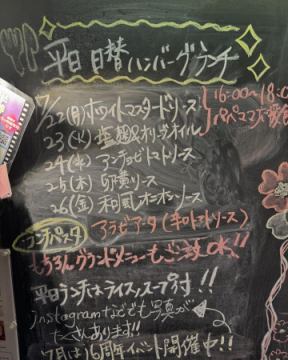 平日 日替ハンバーグランチ
7/22(月)ホワイトマスタードソース
23(火)塩麹&オリーブオイル
24(水)アンチョビトマトソース
25(木)卵黄ソース
26(金)和風オニオンソース
16:00〜18:0
ランチパスタ アラビアータ(辛口トマトソース)
もちろんグランドメニューもご注文OK!!
平日ランチはライス,スープ付!!
instagramなどでも写真が
たくさんあります!!
7月は16周年イベント開催中!!